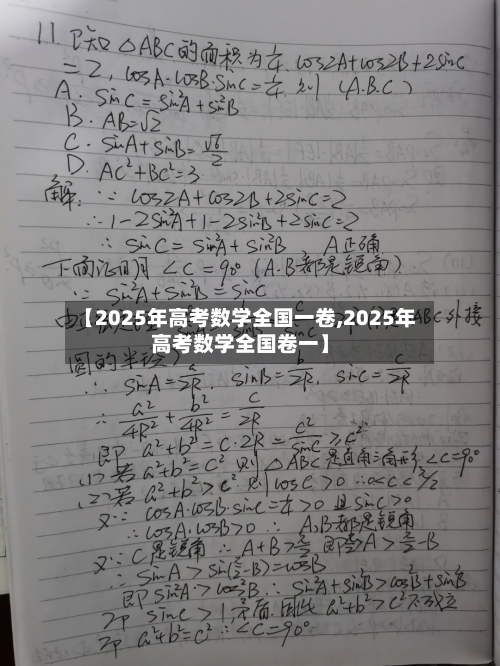 11. 已知△ABC的面积为1/4, cos2A+cos2B+2sinC
=2, cosA·cosB·sinC=1/4, 则 (A.B.C)
A. sinC=sin²A+sin²B
B. AB=√2
C. sinA+sinB=√6/2
D. AC²+BC²=3
解: ∵ cos2A+cos2B+2sinC=2
∴ 1-2sin²A+1-2sin²B+2sinC=2
∴ sinC=sin²A+sin²B, A正确
下面证明∠C=90° (A.B都是锐角)
∵ sin²A+sin²B=sinC
【2025年高考数学全国一卷,2025年
高考数学全国卷一】
由正弦定理 ABC外接
圆的半径)
∴ sinA=a/2R, sinB=b/2R, sinC=c/2R
∴ a²/4R²+b²/4R²=c/2R
即 a²+b²=c·2R=c²/sinC≥c²
(1)若a²+b²=c² 则△ABC是直角三角形,∠C=90°
(2)若a²+b²>c² 则 cosC>0 ∴0<C<π/2
又∵ cosA·cosB·sinC=1/4>0 且sinC>0
∴ cosA·cosB>0 ∴ A,B都是锐角
又∵C是锐角 ∴A+B>π/2 即A>π/2-B
∴ sinA>sin(π/2-B)=cosB
即sin²A>cos²B ∴ sin²A+sin²B>cos²B+sin²B
即 sinC>1,矛盾.因此a²+b²>c²不成立
即 a²+b²=c² ∴∠C=90°